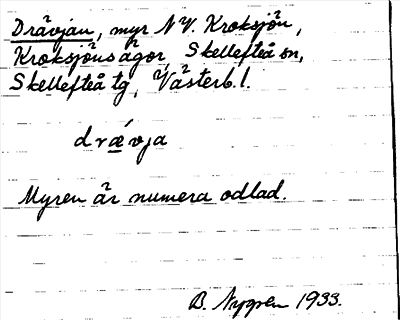 Drävjan, myr NV. Kroksjön,
Kroksjöns ägor, Skellefteå sn,
Skellefteå tg, Västerb. l.
drǽvja
Myren är numera odlad.
B. Nygren 1933.